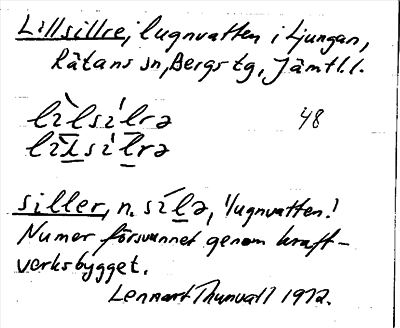 Lillsillre, lugnvatten i Ljungan,
Rätans sn, Bergs tg, Jämtl.l.
lìlsílrə 48
lìlsílrə
siller, n. sílə, 'lugnvatten.'
Numer försvunnet genom kraft-
verksbygget.
Lennart Thunvall 1972.